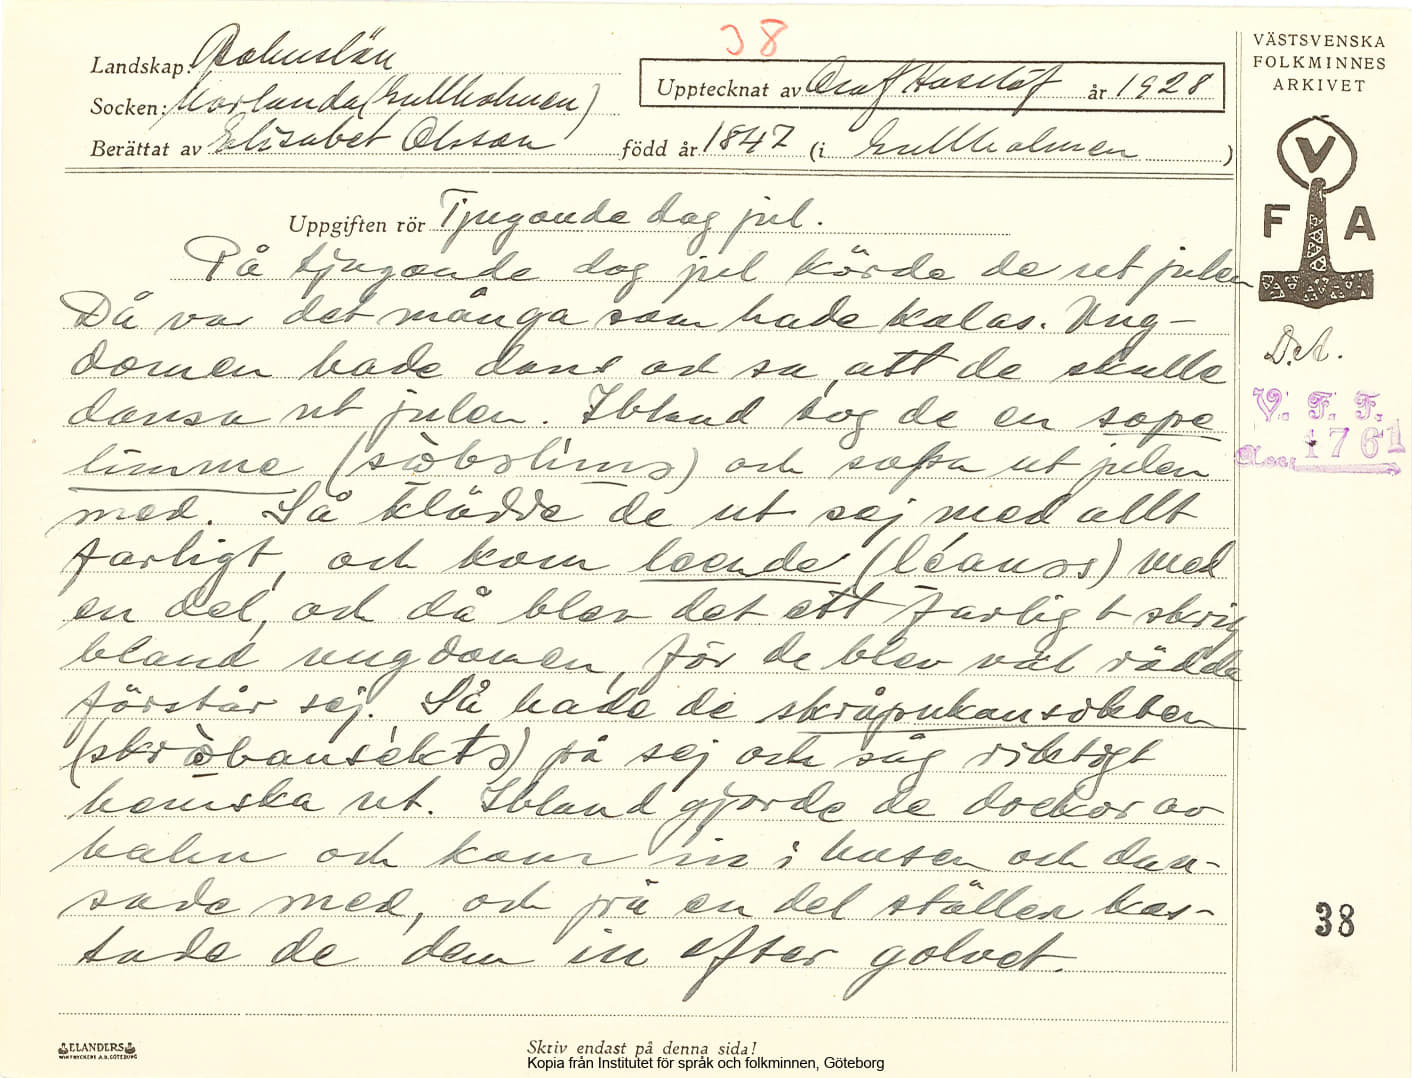 38
Landskap: Bohuslän
Upptecknat av Olof Hasslöf år 1928
Socken: Morlanda (Gullholmen)
Berättat av Elisabet Olsson född år 1847 (i Gullholmen)
VÄSTSVENSKA
FOLKMINNES
ARKIVET
V
F A
D.A.
V. F. F.
Acc. 1761
Uppgiften rör Tjugonde dag jul.
På tjugonde dag jul körde de ut julen
Då var det många som hade kalas. Ung-
domen hade dans och sa, att de skulle
dansa ut julen. Ibland tog de en sope
limme (sòbolims) och sopa ut julen
med. Så klädde de ut sej med allt
farligt, och kom leende (léanss) med
en del, och då blev det ett farligt skrik
bland ungdomen, för de blev väl rädda
förstår sej. Så hade de skråpukansikten
(skròbansékts) på sej och såg riktigt
hemska ut. Ibland gjorde de dockor av
halm och kom in i husen och dan-
sade med, och på en del ställen kas-
tade de dem in efter golvet.
38
ELANDERS
Skriv endast på denna sida!
Kopia från Institutet för språk och folkminnen, Göteborg